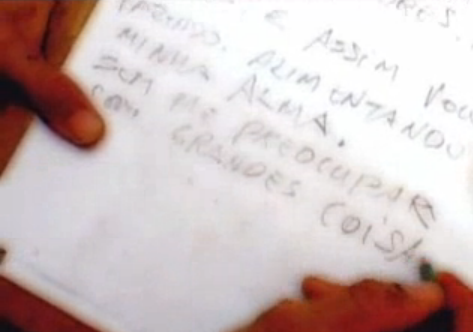 ORES.
E ASSIM VOU
FAZENDO. ALIMENTANDO
MINHA ALMA.
SEM ME PREOCUPAR
COM GRANDES COISA